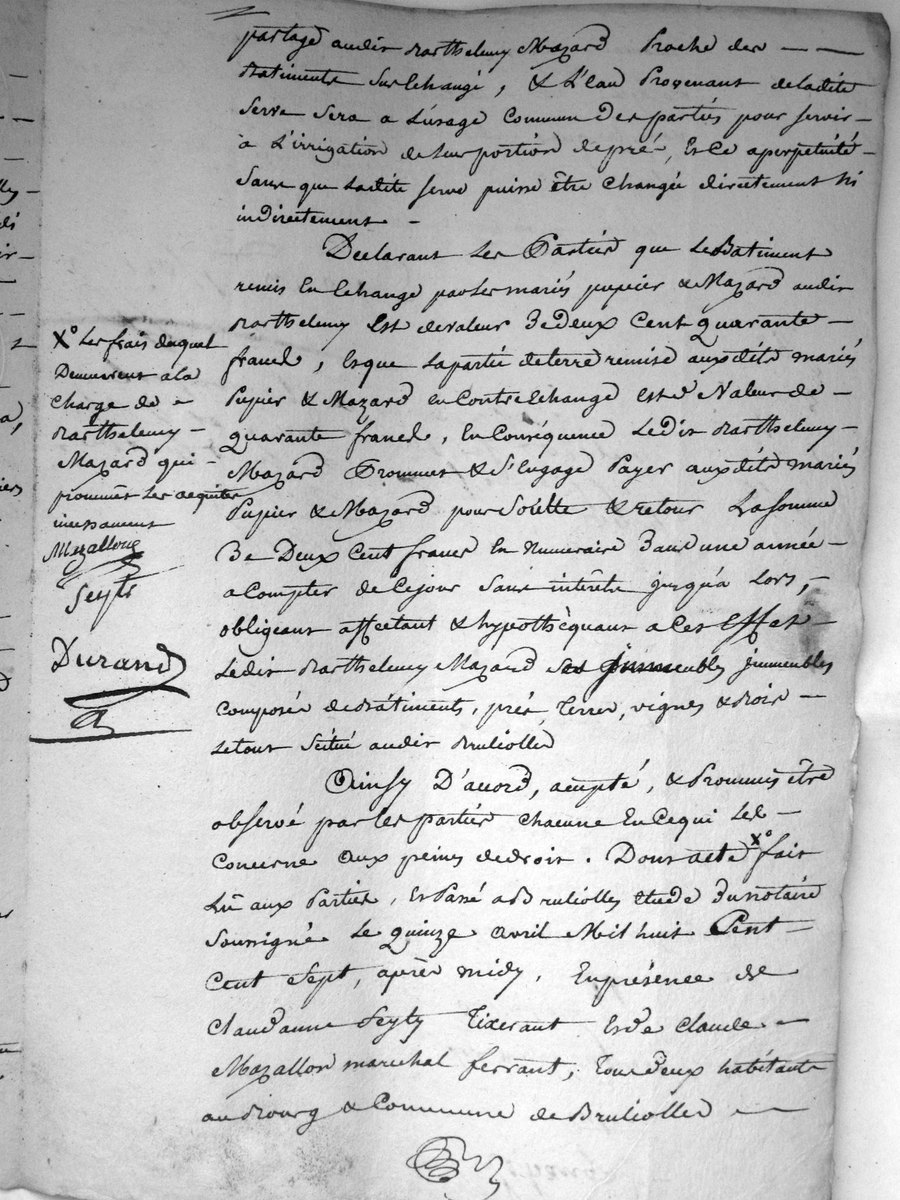 partagé audit Barthelemy Mazard Proche des
Batiments Sur Echangé, & L'eau Provenant de ladite
Serve Sera a L'usage Commun des parties pour Servir
a L'irrigation de leur portion de pré, Et Ce a perpétuité
Sans que Ladite Serve puisse être Changée directement ni
indirectement
Declarant Les Parties que Le Batiment
remis En Echange par Les mariés pupier & Mazard audit
Barthelemy Est de valeur De deux Cent quarante
francs, Et que La partie de terre remise auxdits mariés
Pupier & Mazard en Contre Echange est de Valeur de
quarante francs, En Conséquence Ledit Barthelemy
Mazard Promet & S'Engage Payer auxdits mariés
Pupier & Mazard pour Soulte & retour La Somme
De Deux Cent francs En Numeraire Dans une année
a Compter de Ce jour Sans intérêts jusqu'a Lors,
obligeant affectant & hypothèquant a Cet Effet
Ledit Barthelemy Mazard Ses immeubles
Composés de Bâtiments, prés, Terres, vignes & Bois
Le tout Scitué audit Brullioles
Ainsy D'accord, accepté, & Promis être
observé par Les parties Chacune En Ce qui Les
Concerne aux peines de droit. Dont acte X° fait
Lû aux Parties, Et Passé a Brullioles Etude Du notaire
Soussigné Le quinze avril Mil huit Cent
Cent Sept, après midy, En présence de
Claudanne Seyty Tixerant Et de Claude
Mazallon maréchal ferrant, Tous deux habitants
au Bourg & Commune de Brullioles
X° Les frais duquel
Demeurent a la
Charge de
Barthelemy
Mazard qui
promet Les acquitter
incessament
Mazallon
Seyti
Durand